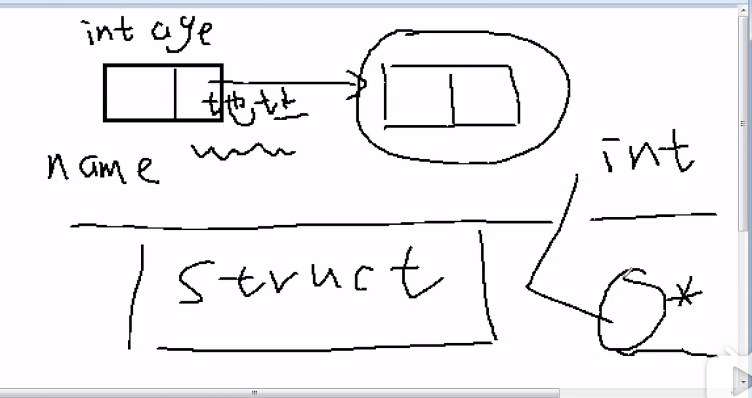 int age
name
int
struct
*